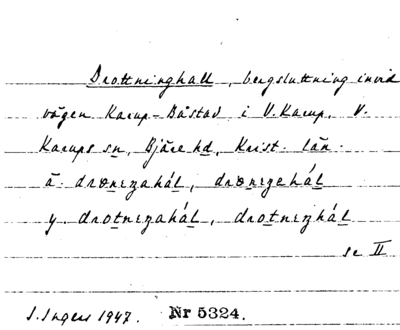 Drottninghall, bergsluttning invid
vägen Karup-Båstad i V. Karup, V.
Karups sn, Bjäre hd, Krist. län.
ä. drønizahál, drønizehál
y. drotnizahál, drotnizhál
se II
I. Ingers 1947. Nr 5324.